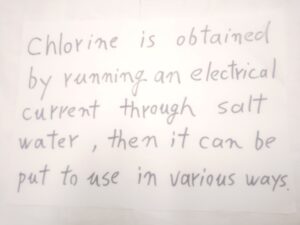 Chlorine is obtained
by running an electrical
current through salt
water, then it can be
put to use in various ways.